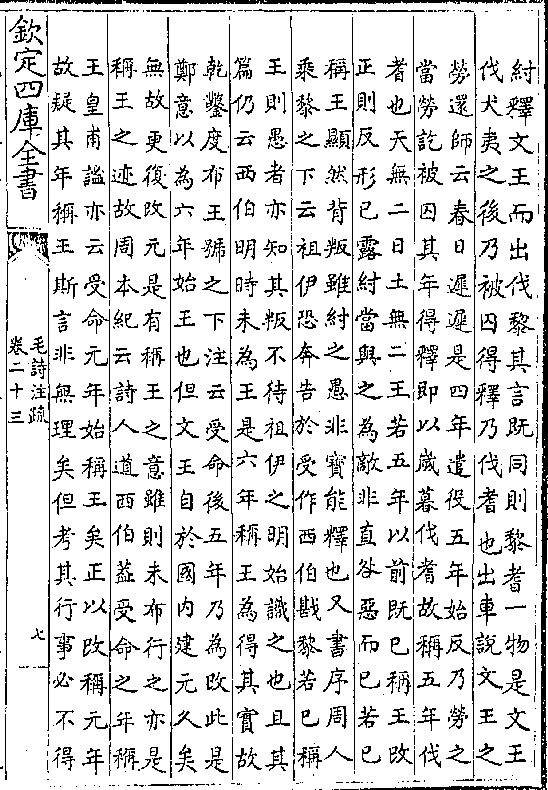 紂釋文王而出伐黎其言既同則黎耆一物是文王
伐犬夷之後乃被囚得釋乃伐耆也出車說文王之
勞還師云春日遲遲是四年遣役五年始反乃勞之
當勞訖被囚其年得釋即以歲暮伐耆故稱五年伐
者也天無二日土無二王若五年以前既已稱王改
正則反形已露紂當與之為敵非直咎惡而已若已
稱王顯然背叛雖紂之愚非寳能釋也又書序周人
乘黎之下云祖伊恐奔告於受作西伯戡黎若已稱
王則愚者亦知其叛不待祖伊之明始識之也且其
篇仍云西伯明時未為王是六年稱王為得其實故
乾鑿度布王號之下注云受命後五年乃為改此是
鄭意以為六年始王也但文王自於國内建元久矣
無故更復改元是有稱王之意雖則未布行之亦是
稱王之迹故周本紀云詩人道西伯葢受命之年稱
王皇甫謐亦云受命元年始稱王矣正以改稱元年
故疑其年稱王斯言非無理矣但考其行事必不得
欽定四庫全書
毛詩注疏
卷二十三
七